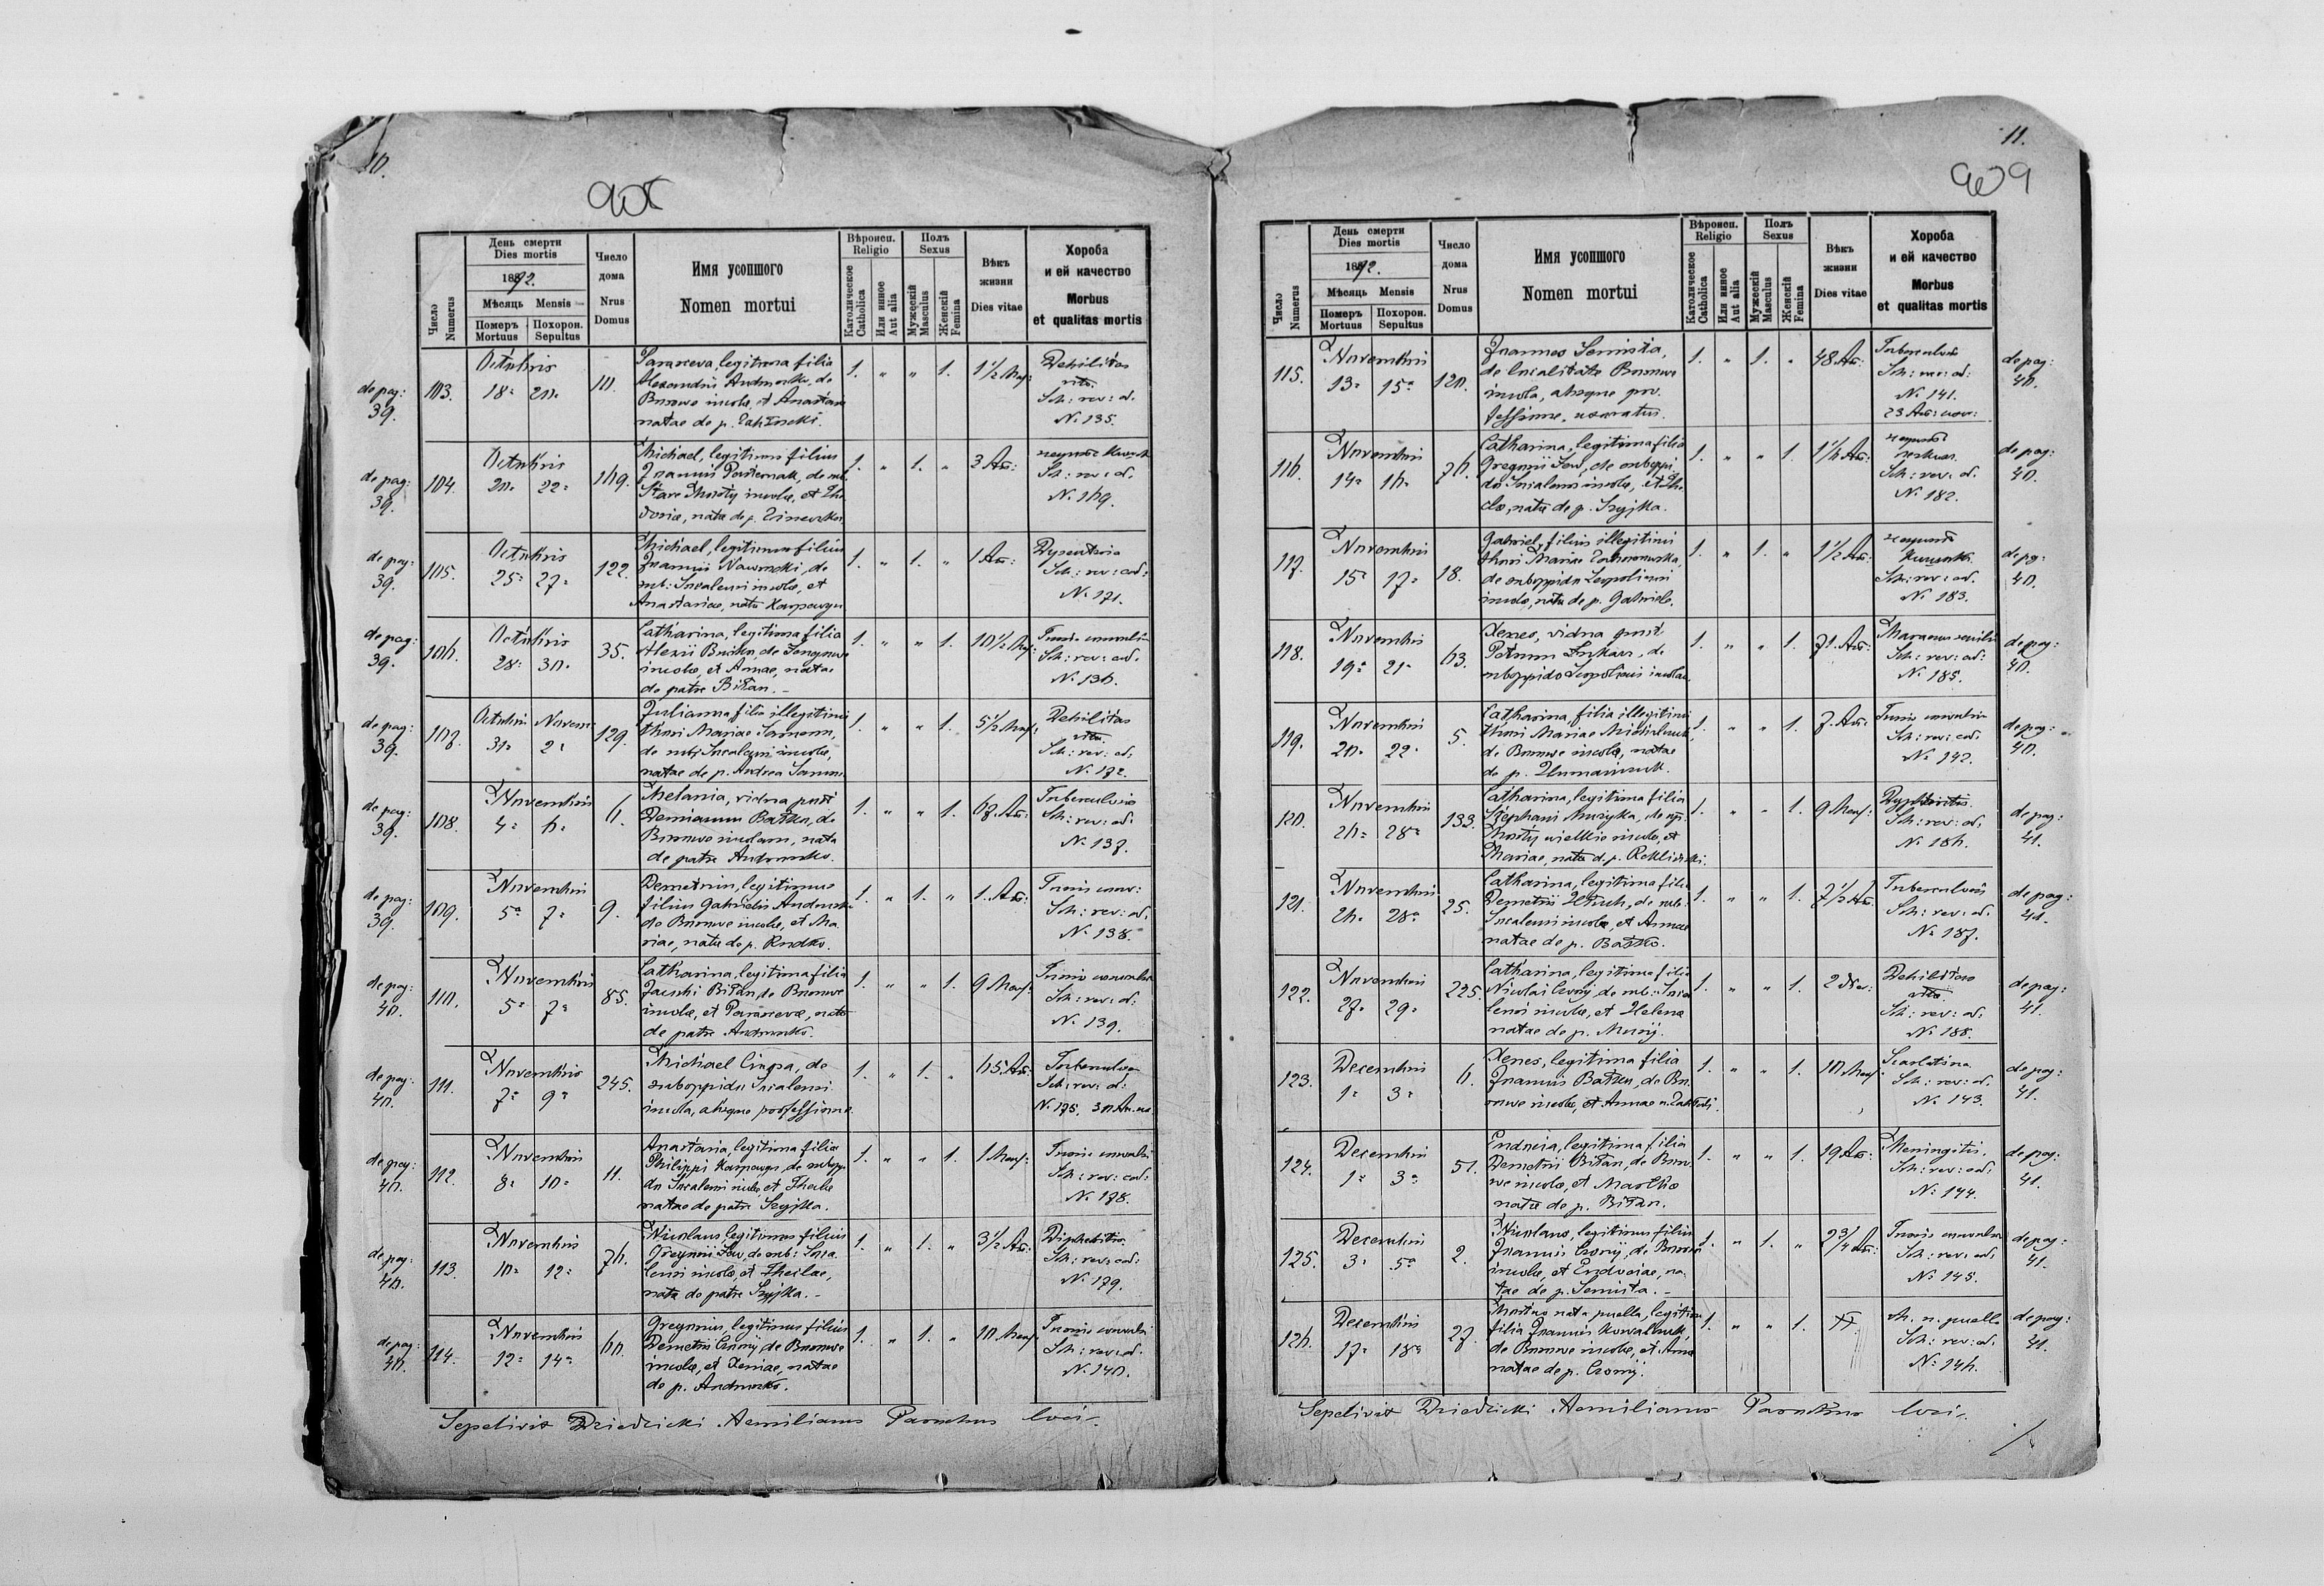 10.
День смерти
Dies mortis
1892.
Мѣсяць Mensis
Померъ Похорон.
Mortuus Sepultus
Число
Numerus
Число
дома
Nrus
Domus
Имя усопшого
Nomen mortui
Вѣроисп.
Religio
Католическое
Catholica
Или инное
Aut alia
Полъ
Sexus
Мужескій
Masculus
Женскій
Femina
Вѣкъ
жизни
Dies vitae
Хороба
и ей качество
Morbus
et qualitas mortis
de pag: 39. 103. Octobris 18. 20. 10.
Parasceva, legitima filia
Alexandri Andrusko, de
Bronowe incolae, et Anastasiae
natae de p.
1. " " 1. 1 1/2 Mens:
Debilitas
vitae
Sch: rev: ad.
N. 135.
de pag: 39. 104. Octobris 20. 22. 169.
Michael, legitimus filius
Joannis Pasternak, de
Stare incolae, et
natae de p.
1. " 1. " 3 An:
Sch: rev: ad.
N. 169.
de pag: 39. 105. Octobris 25. 27. 122.
Michael, legitimus filius
Joannis Nawrocki, de
sub: Socalensi incolae, et
Anastasiae, natae Karpowycz
1. " 1. " 1 An:
Dysenteria
Sch: rev: ad:
N. 171.
de pag: 39. 106. Octobris 28. 30. 35.
Catharina, legitima filia
Alexii de
incolae, et Annae, natae
de patre Biłan.
1. " " 1. 10 1/2 Mens:
Tussis convulsiva
Sch: rev: ad.
N. 136.
de pag: 39. 107. Octobris Novem: 31. 2. 129.
Julianna filia illegitimi
thori Mariae
de sub: Socalensi incolae,
natae de p. Andrea
1. " " 1. 5 1/2 Mens:
Debilitas
vitae,
Sch: rev: ad:
N. 172.
de pag: 39. 108. Novembris 4. 6. 6.
Melania, vidua post
Demianum Batko, de
Bronowe incolam, nata
de patre Andrusko.
1. " " 1. 67 An:
Tuberculosis
Sch: rev: ad:
N. 137.
de pag: 39. 109. Novembris 5. 7. 9.
Demetrius, legitimus
filius Gabrielis Andrusko
de Bronowe incolae, et Ma-
riae, natae de p. Rudko.
1. " 1. " 1. An:
Tussis conv:
Sch: rev: ad.
N. 138.
de pag: 40. 110. Novembris 5. 7. 85.
Catharina, legitima filia
Jacobi Biłan, de Bronowe
incolae, et Parascevae, natae
de patre Andrusko.
1. " " 1. 9 Mens:
Tussis convulsiva
Sch: rev: ad.
N. 139.
de pag: 40. 111. Novembris 7. 9. 245.
Michael de
suboppido Socalensi
incola, absque professione
1. " 1. " 65 An:
Tuberculosis
Sch: rev: ad:
N. 175.
de pag: 40. 112. Novembris 8. 10. 11.
Anastasia, legitima filia
Philippi Karpowycz, de suboppi-
do Socalensi incolae, et Theclae
natae de patre Szyjka.
1. " " 1. 1 Mens:
Tussis convulsi
Sch: rev: ad:
N. 178.
de pag: 40. 113. Novembris 10. 12. 76.
Nicolaus legitimus filius
Gregorii de sub: Soca-
lensi incolae, et Theclae,
natae de patre Szyjka.
1. " 1. " 3 1/2 An:
Diphteritis.
Sch: rev: ad:
N. 179.
de pag: 40. 114. Novembris 12. 14. 60.
Gregorius, legitimus filius
Demetrii Czornij de Bronowe
incolae, et Xeniae, natae
de p. Andrusko.
1. " 1. " 10 Mens:
Tussis convulsi
Sch: rev: ad.
N. 140.
Sepelivit Dziedzicki Aemilianus Parochus loci.
11.
909
День смерти
Dies mortis
1892.
Мѣсяць Mensis
Померъ Похорон.
Mortuus Sepultus
Число
Numerus
Число
дома
Nrus
Domus
Имя усопшого
Nomen mortui
Вѣроисп.
Religio
Католическое
Catholica
Или инное
Aut alia
Полъ
Sexus
Мужескій
Masculus
Женскій
Femina
Вѣкъ
жизни
Dies vitae
Хороба
и ей качество
Morbus
et qualitas mortis
115. Novembris 13. 15. 120.
Joannes Semista,
de localitate Bronowe
incola, absque pro-
fessione, uxoratus.
1. " 1. " 48 An:
Tuberculosis
Sch: rev: ad:
N. 141.
23 An:
de pag: 40.
116. Novembris 14. 16. 76.
Catharina, legitima filia
Gregorii de suboppi-
do Socalensi incolae, et The-
clae, natae de p. Szyjka.
1. " " 1. An:
Sch: rev: ad.
N. 182.
de pag: 40.
117. Novembris 15. 17. 18.
Gabriel, filius illegitimi
thori Mariae
de suboppido
incolae, natae de p. Gabriele.
1. " 1. " 1 1/2 An:
Sch: rev: ad.
N. 183.
de pag: 40.
118. Novembris 19. 21. 63.
Xenes, vidua post
Petrum de
suboppido incolam
1. " " 1. 71. An:
Marasmus senilis
Sch: rev: ad:
N. 185.
de pag: 40.
119. Novembris 20. 22. 5.
Catharina, filia illegitimi
thori Mariae
de Bronowe incolae, natae
de p.
1. " " 1. 7. An:
Tussis convulsiva
Sch: rev: ad.
N. 142.
de pag: 40.
120. Novembris 26. 28. 133.
Catharina, legitima filia
Stephani Muzyka, de
Mosty wielkie incolae, et
Mariae, natae d. p.
1. " " 1. 9 Mens:
Sch: rev: ad.
N. 186.
de pag: 41.
121. Novembris 26. 28. 25.
Catharina, legitima filia
Demetrii de sub:
Socalensi incolae, et Annae
natae de p. Batko.
1. " " 1. 7 1/2 An:
Tuberculosis
Sch: rev: ad.
N. 187.
de pag: 41.
122. Novembris 27. 29. 225.
Catharina, legitima filia
Nicolai Czornij, de sub: Soca-
lensi incolae, et Helenae
natae de p.
1. " " 1.
Debilitas
vitae
Sch: rev: ad.
N. 188.
de pag: 41.
123. Decembris 1. 3. 6.
Xenes, legitima filia
Joannis Batko, de Bro-
nowe incolae, et Annae
1. " " 1. 10 Mens:
Scarlatina
Sch: rev: ad.
N. 143.
de pag: 41.
124. Decembris 1. 3. 51.
Eudocia, legitima filia
Demetrii Biłan, de Brono-
we incolae, et Marthae
natae de p. Biłan.
1. " " 1. 19 An:
Meningitis.
Sch: rev: ad.
N. 144.
de pag: 41.
125. Decembris 3. 5. 2.
Nicolaus, legitimus filius
Joannis Czornij, de Bronowe
incolae, et Eudociae, na-
tae de p. Semista.
1. " 1. " 2 3/4 An:
Tussis convulsi
Sch: rev: ad.
N. 145.
de pag: 41.
126. Decembris 17. 18. 27.
Mortuo nata puella, legitima
filia Joannis Kowalczuk,
de Bronowe incolae, et Annae
natae de p. Czornij.
1. " " 1.
M. n. puella
Sch: rev: ad.
N. 146.
de pag: 41.
Sepelivit Dziedzicki Aemilianus Parochus loci.